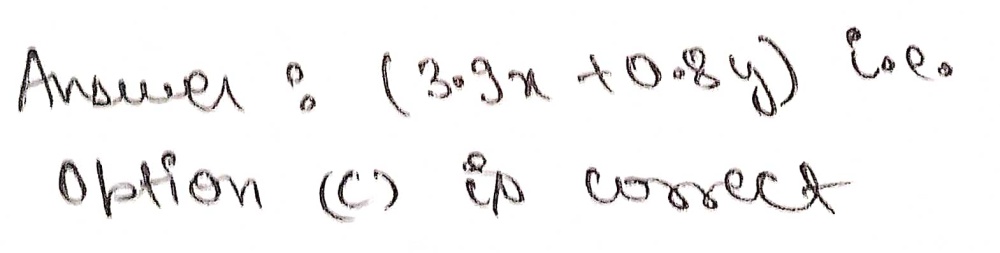 Answer : (3.9x + 0.8y) i.e.
Option (C) is correct